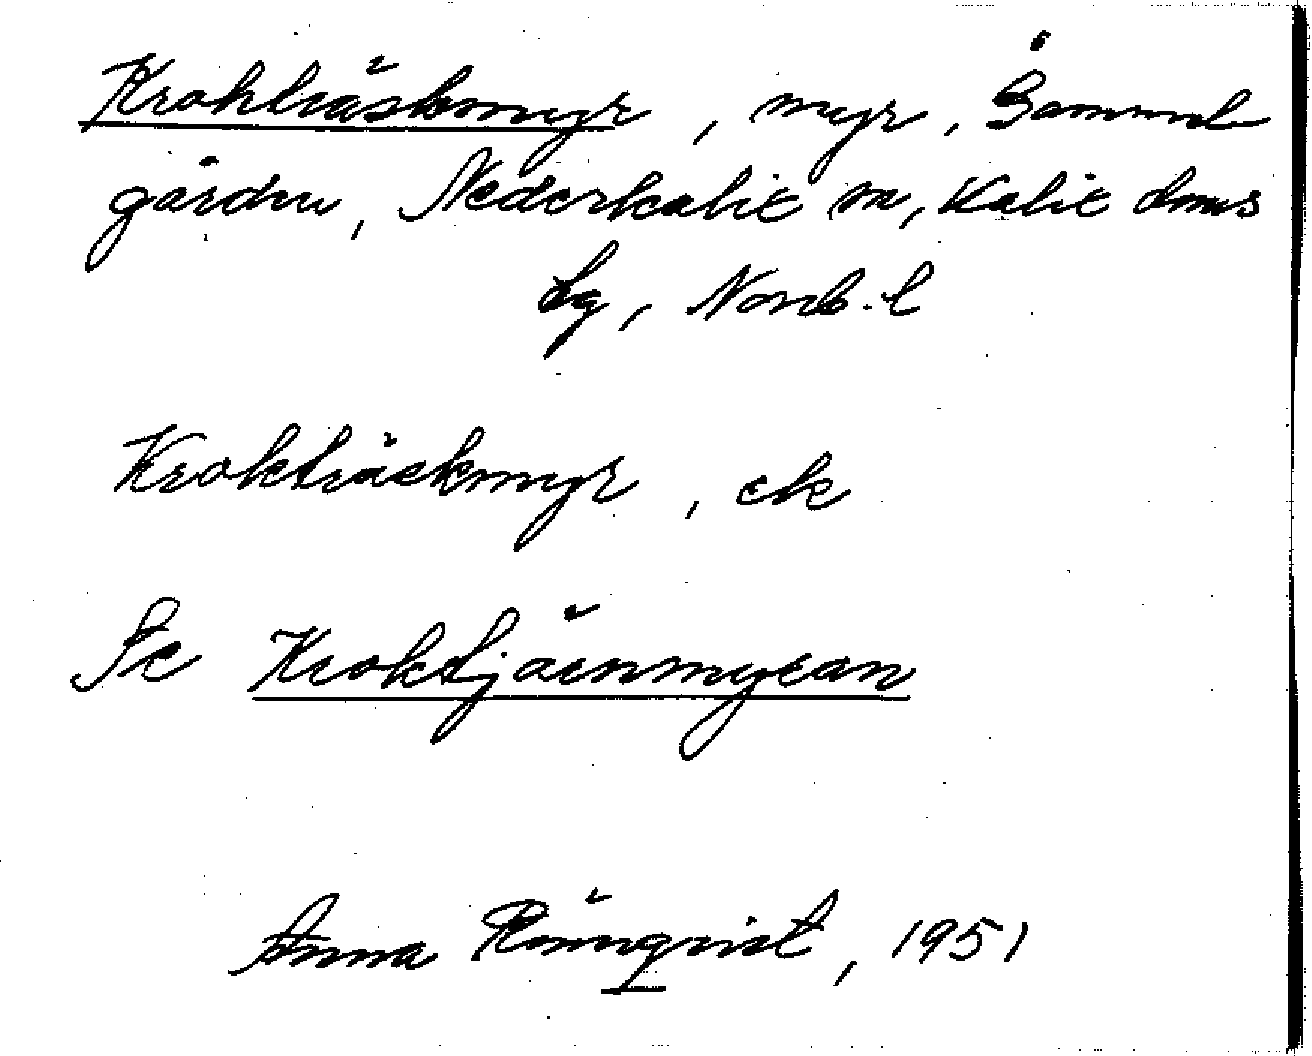 Krokträskmyr, myr, Gammel
gården, Nederkalix sn, Kalix dms
lg, Norrb. l
Krokträskmyr, ek
Se Kroktjärnmyran
Anna Rönnqvist, 1951